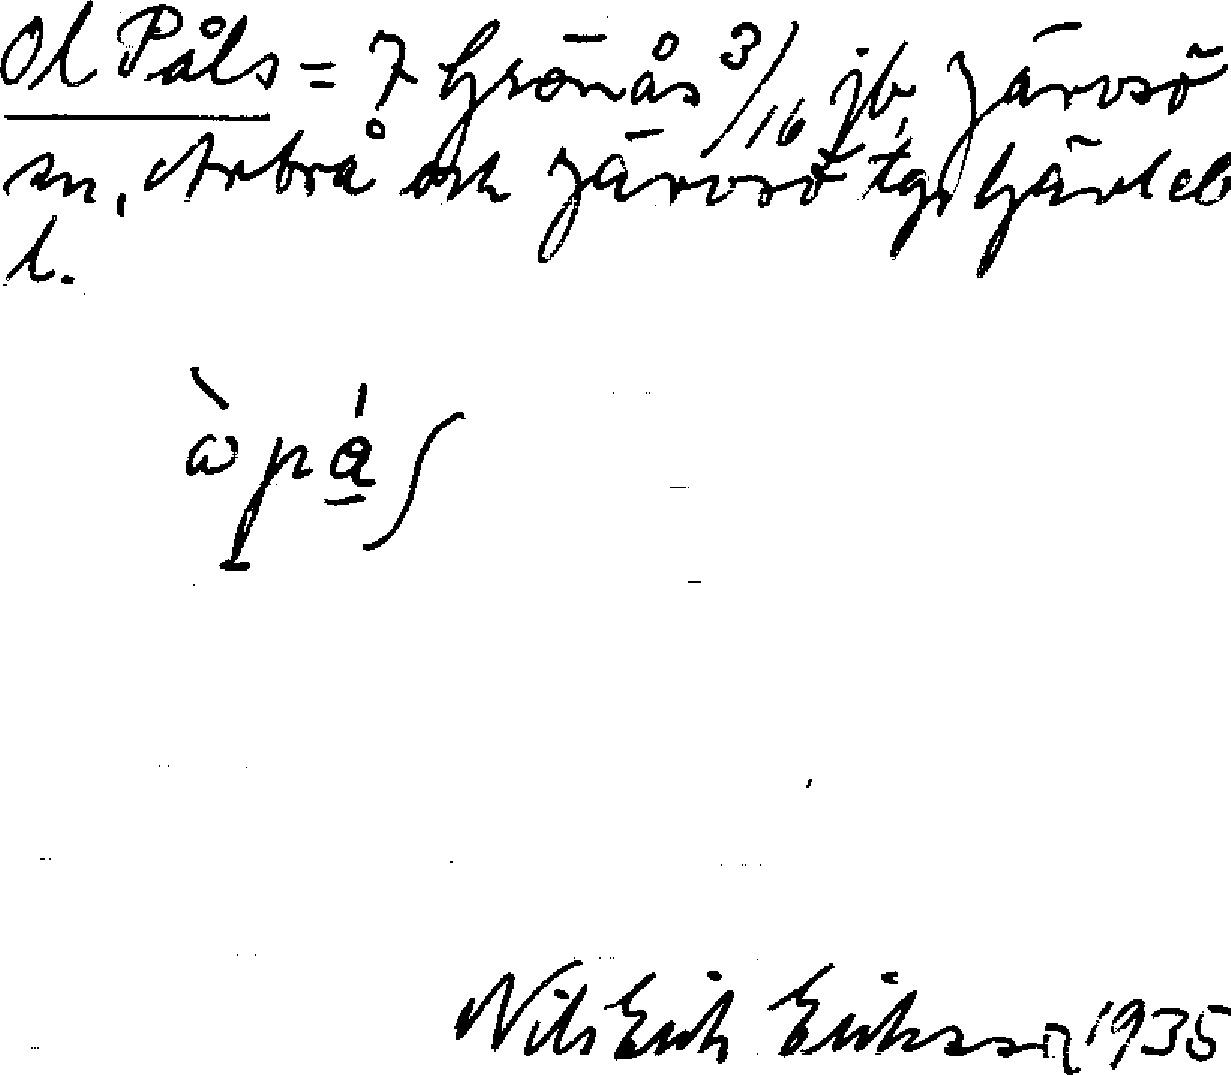 Ol Påls = 7 Grönås 3/16 jb, Järvsö
sn, Arbrå och Järvsö tg, Gävleb
l.
Nils Erik Eriksson 1935